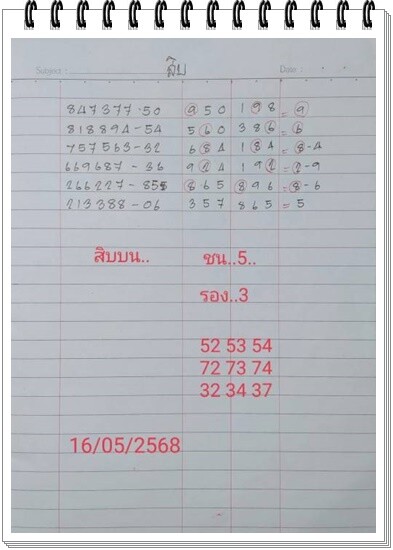 Subject : สิบ Date :
847377-50 950 198 = 9
818894-54 560 386 = 6
757563-32 684 184 = 8-4
669687-36 924 192 = 2-9
266227-855 865 896 = 8-6
213388-06 357 865 = 5
สิบบน.. ชน..5..
รอง..3
52 53 54
72 73 74
32 34 37
16/05/2568